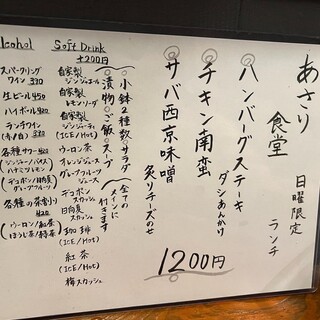 あさり食堂
日曜限定 ランチ
◎ハンバーグステーキ
ダシあんかけ
◎チキン南蛮
◎サバ西京味噌
炙りチーズのせ
1200円
小鉢2種・サラダ
漬物・ご飯・スープ
全てのメインに付きます
Soft Drink
+200円
自家製ジンジャーエール
自家製レモンソーダ
自家製ジンジャーティ
(ICE/Hot)
ウーロン茶
オレンジジュース
グレープフルーツジュース
デコポンスカッシュ
日向夏スカッシュ
珈琲
(ICE/Hot)
紅茶
(ICE/Hot)
梅スカッシュ
lcohol
スパークリングワイン 390
生ビール 450
ハイボール 420
ランチワイン
各種サワー 420
ジンジャー
ハチミツレモン
デコポン/日向夏
グレープフルーツ
各種お茶割り
420
ウーロン/紅茶
ほうじ茶/緑茶